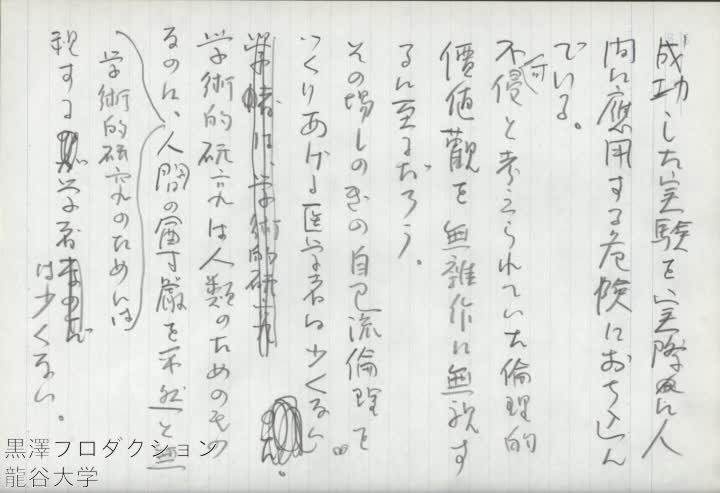 成功した実験を、実際に人
間に應用する危険におち込ん
でいる。
不可侵と考えられていた倫理的
價値觀を無雑作に無視す
るに至るだろう。
その場しのぎの自己流倫理を
つくりあげる医学者は少くない。
学術的研究は人類のためのもの
なのに、人間の尊厳を平然と無
学術的研究のためには
視する学者は少くない。
黒澤プロダクション
龍谷大学